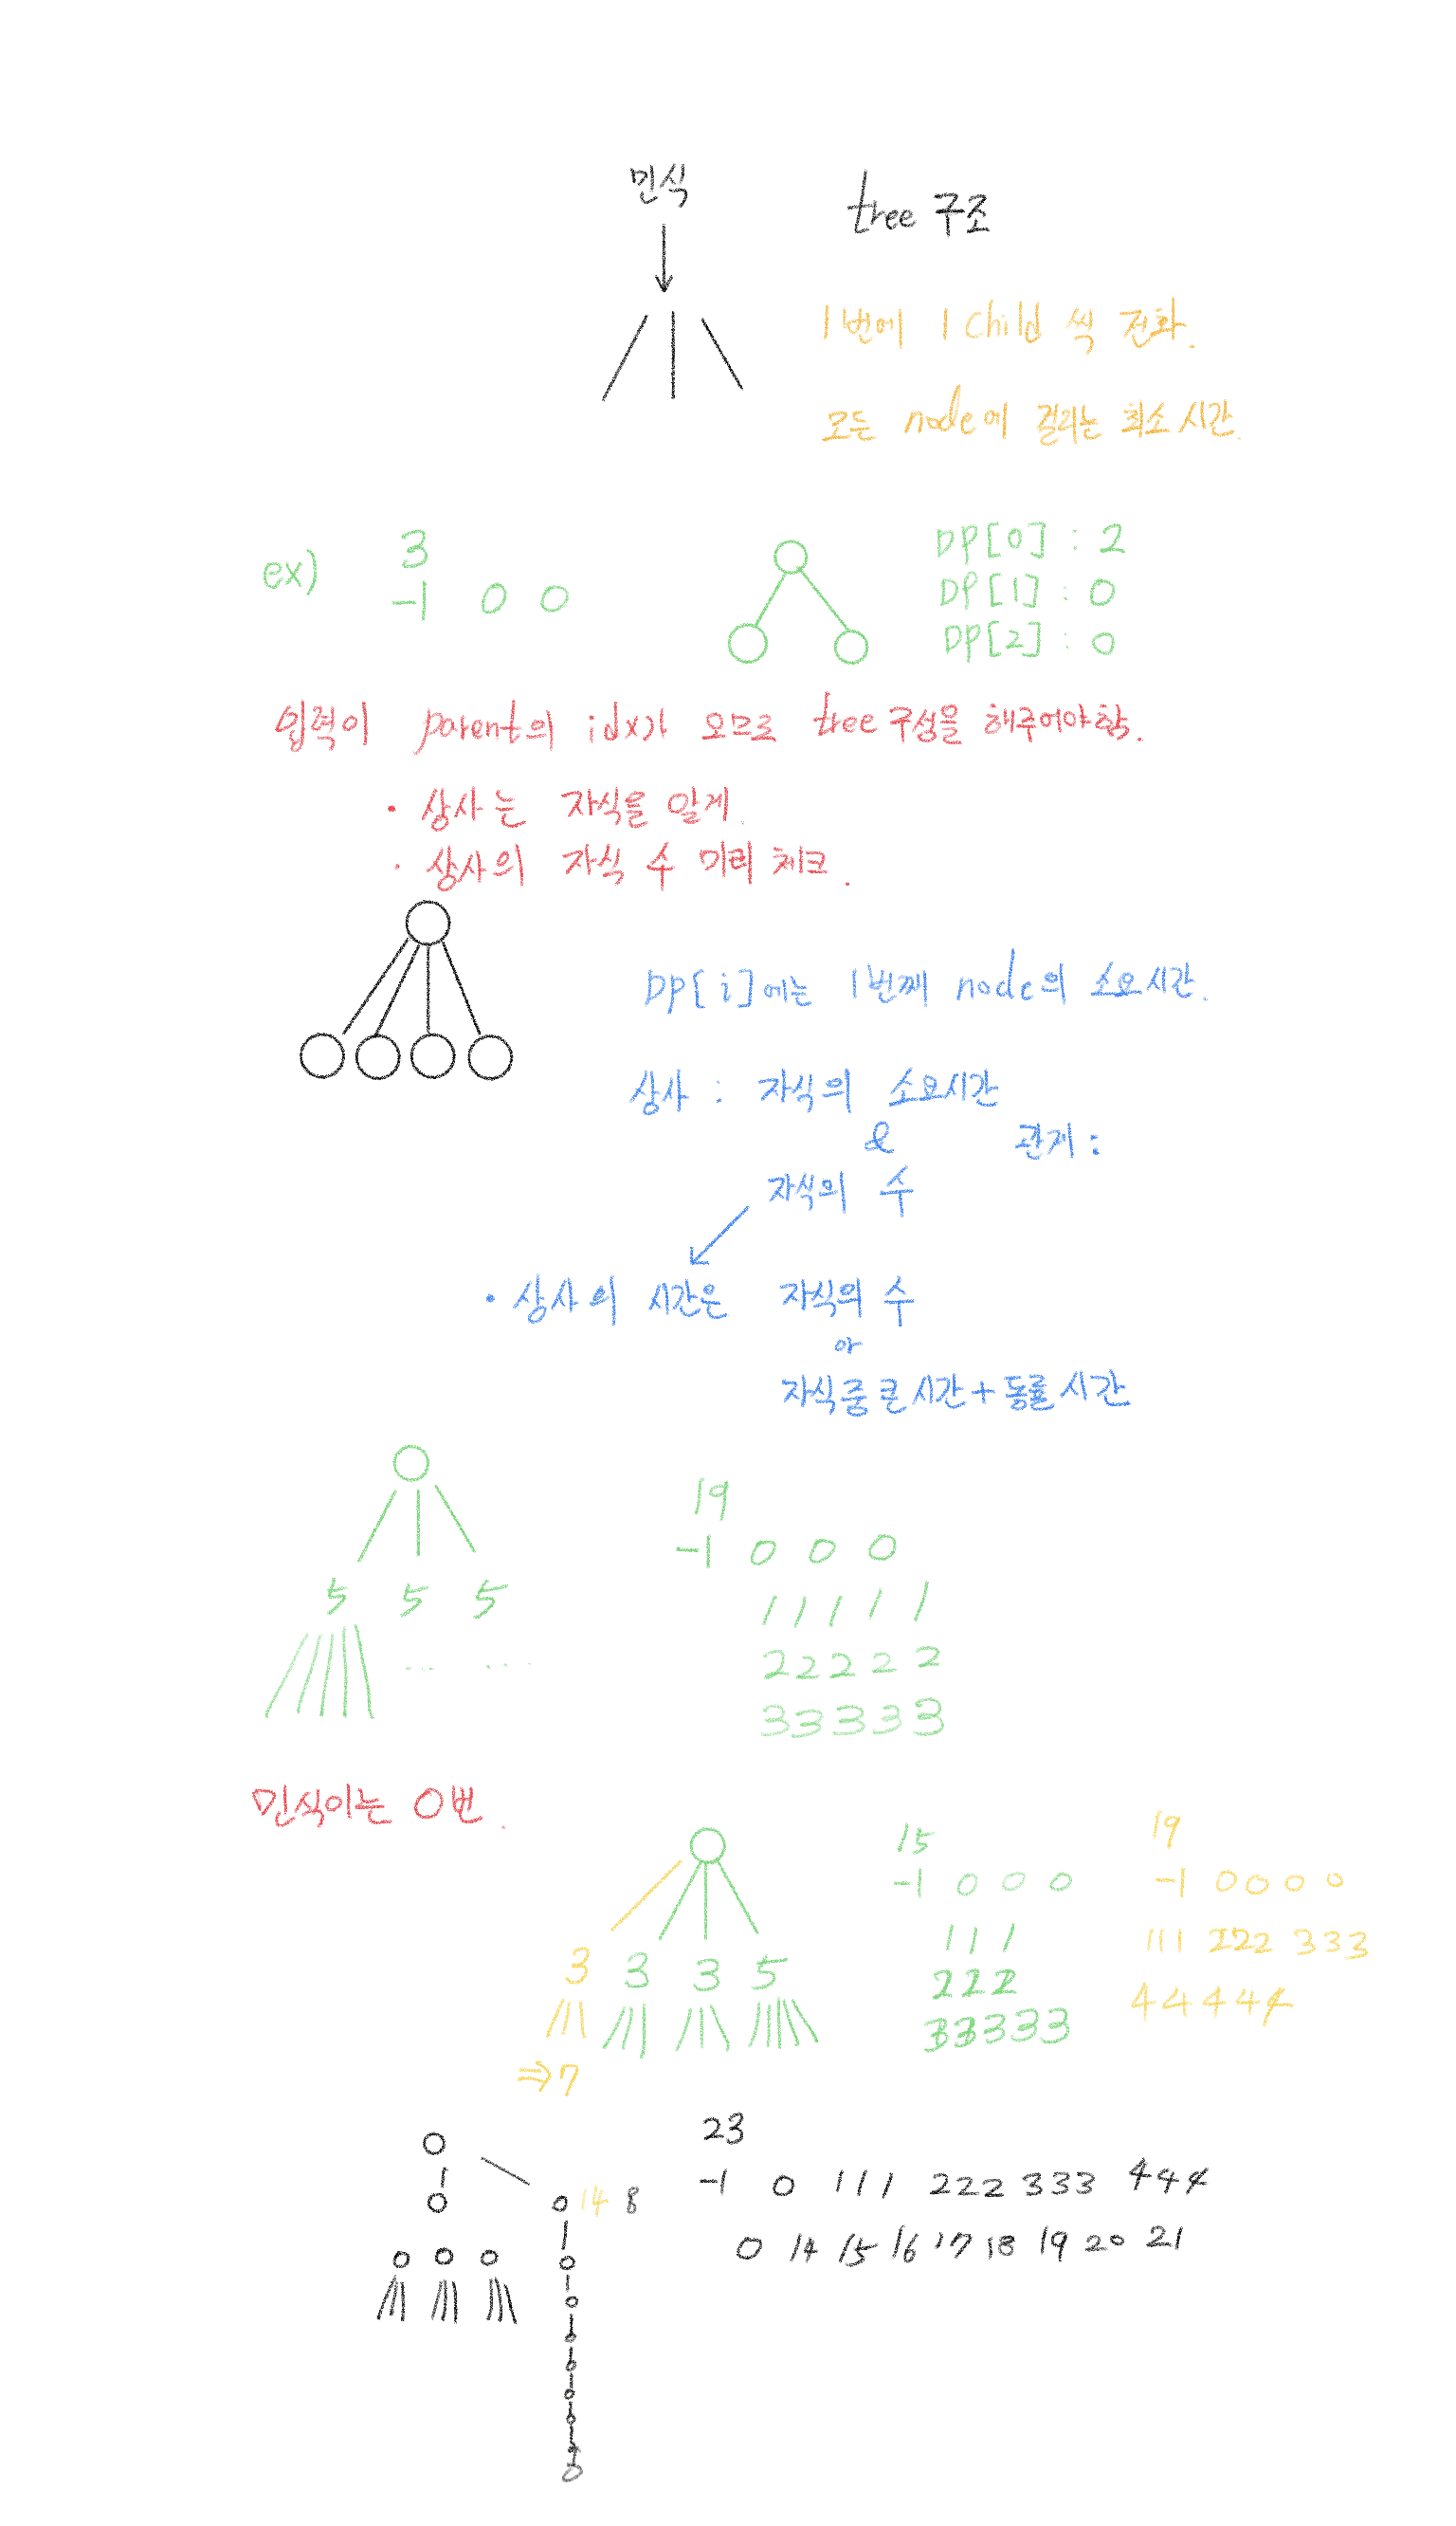 민식
tree 구조
1번에 1 child 씩 전화.
모든 node에 걸리는 최소시간.
ex)
3
-1 0 0
DP[0] : 2
DP[1] : 0
DP[2] : 0
입력이 parent의 idx가 오므로 tree 구성을 해주어야함.
• 상사는 자식을 알게.
• 상사의 자식 수 미리 체크.
DP[i]에는 1번째 node의 소요시간.
상사 : 자식의 소요시간
& 관계 :
자식의 수
• 상사의 시간은 자식의 수
or
자식중 큰 시간 + 동률 시간
19
-1 0 0 0
5 5 5
1 1 1 1 1
2 2 2 2 2
3 3 3 3 3
민식이는 0번.
15
-1 0 0 0
1 1 1
2 2 2
3 3 3 3 3
19
-1 0 0 0 0
1 1 1 2 2 2 3 3 3
4 4 4 4 4
3 3 3 5
⇒ 7
23
-1 0 1 1 1 2 2 2 3 3 3 4 4 4
0 14 15 16 17 18 19 20 21
14 8